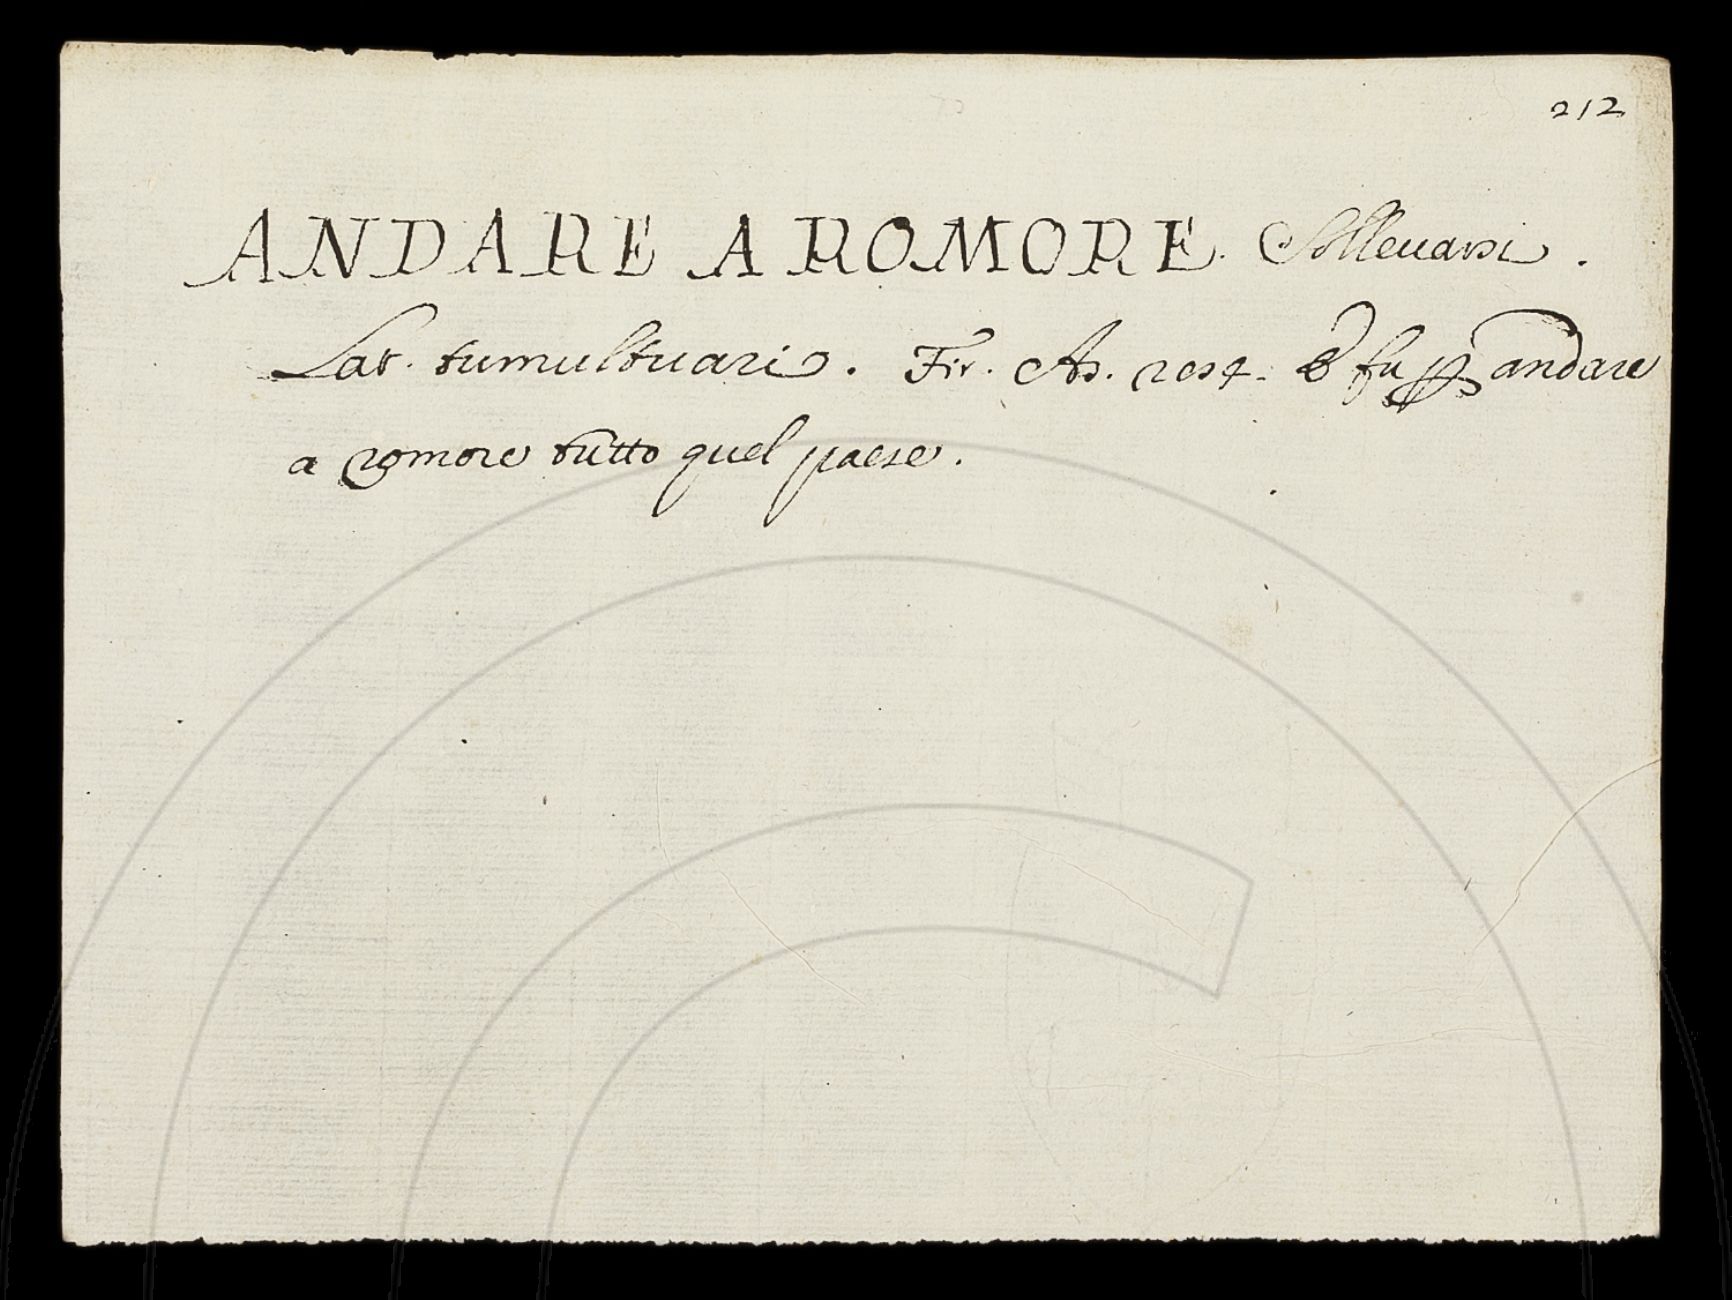 212
ANDARE A ROMORE. Solleuarsi.
Lat. tumultuari. Fir. As. 204. E fu p andare
a romore tutto quel paese.